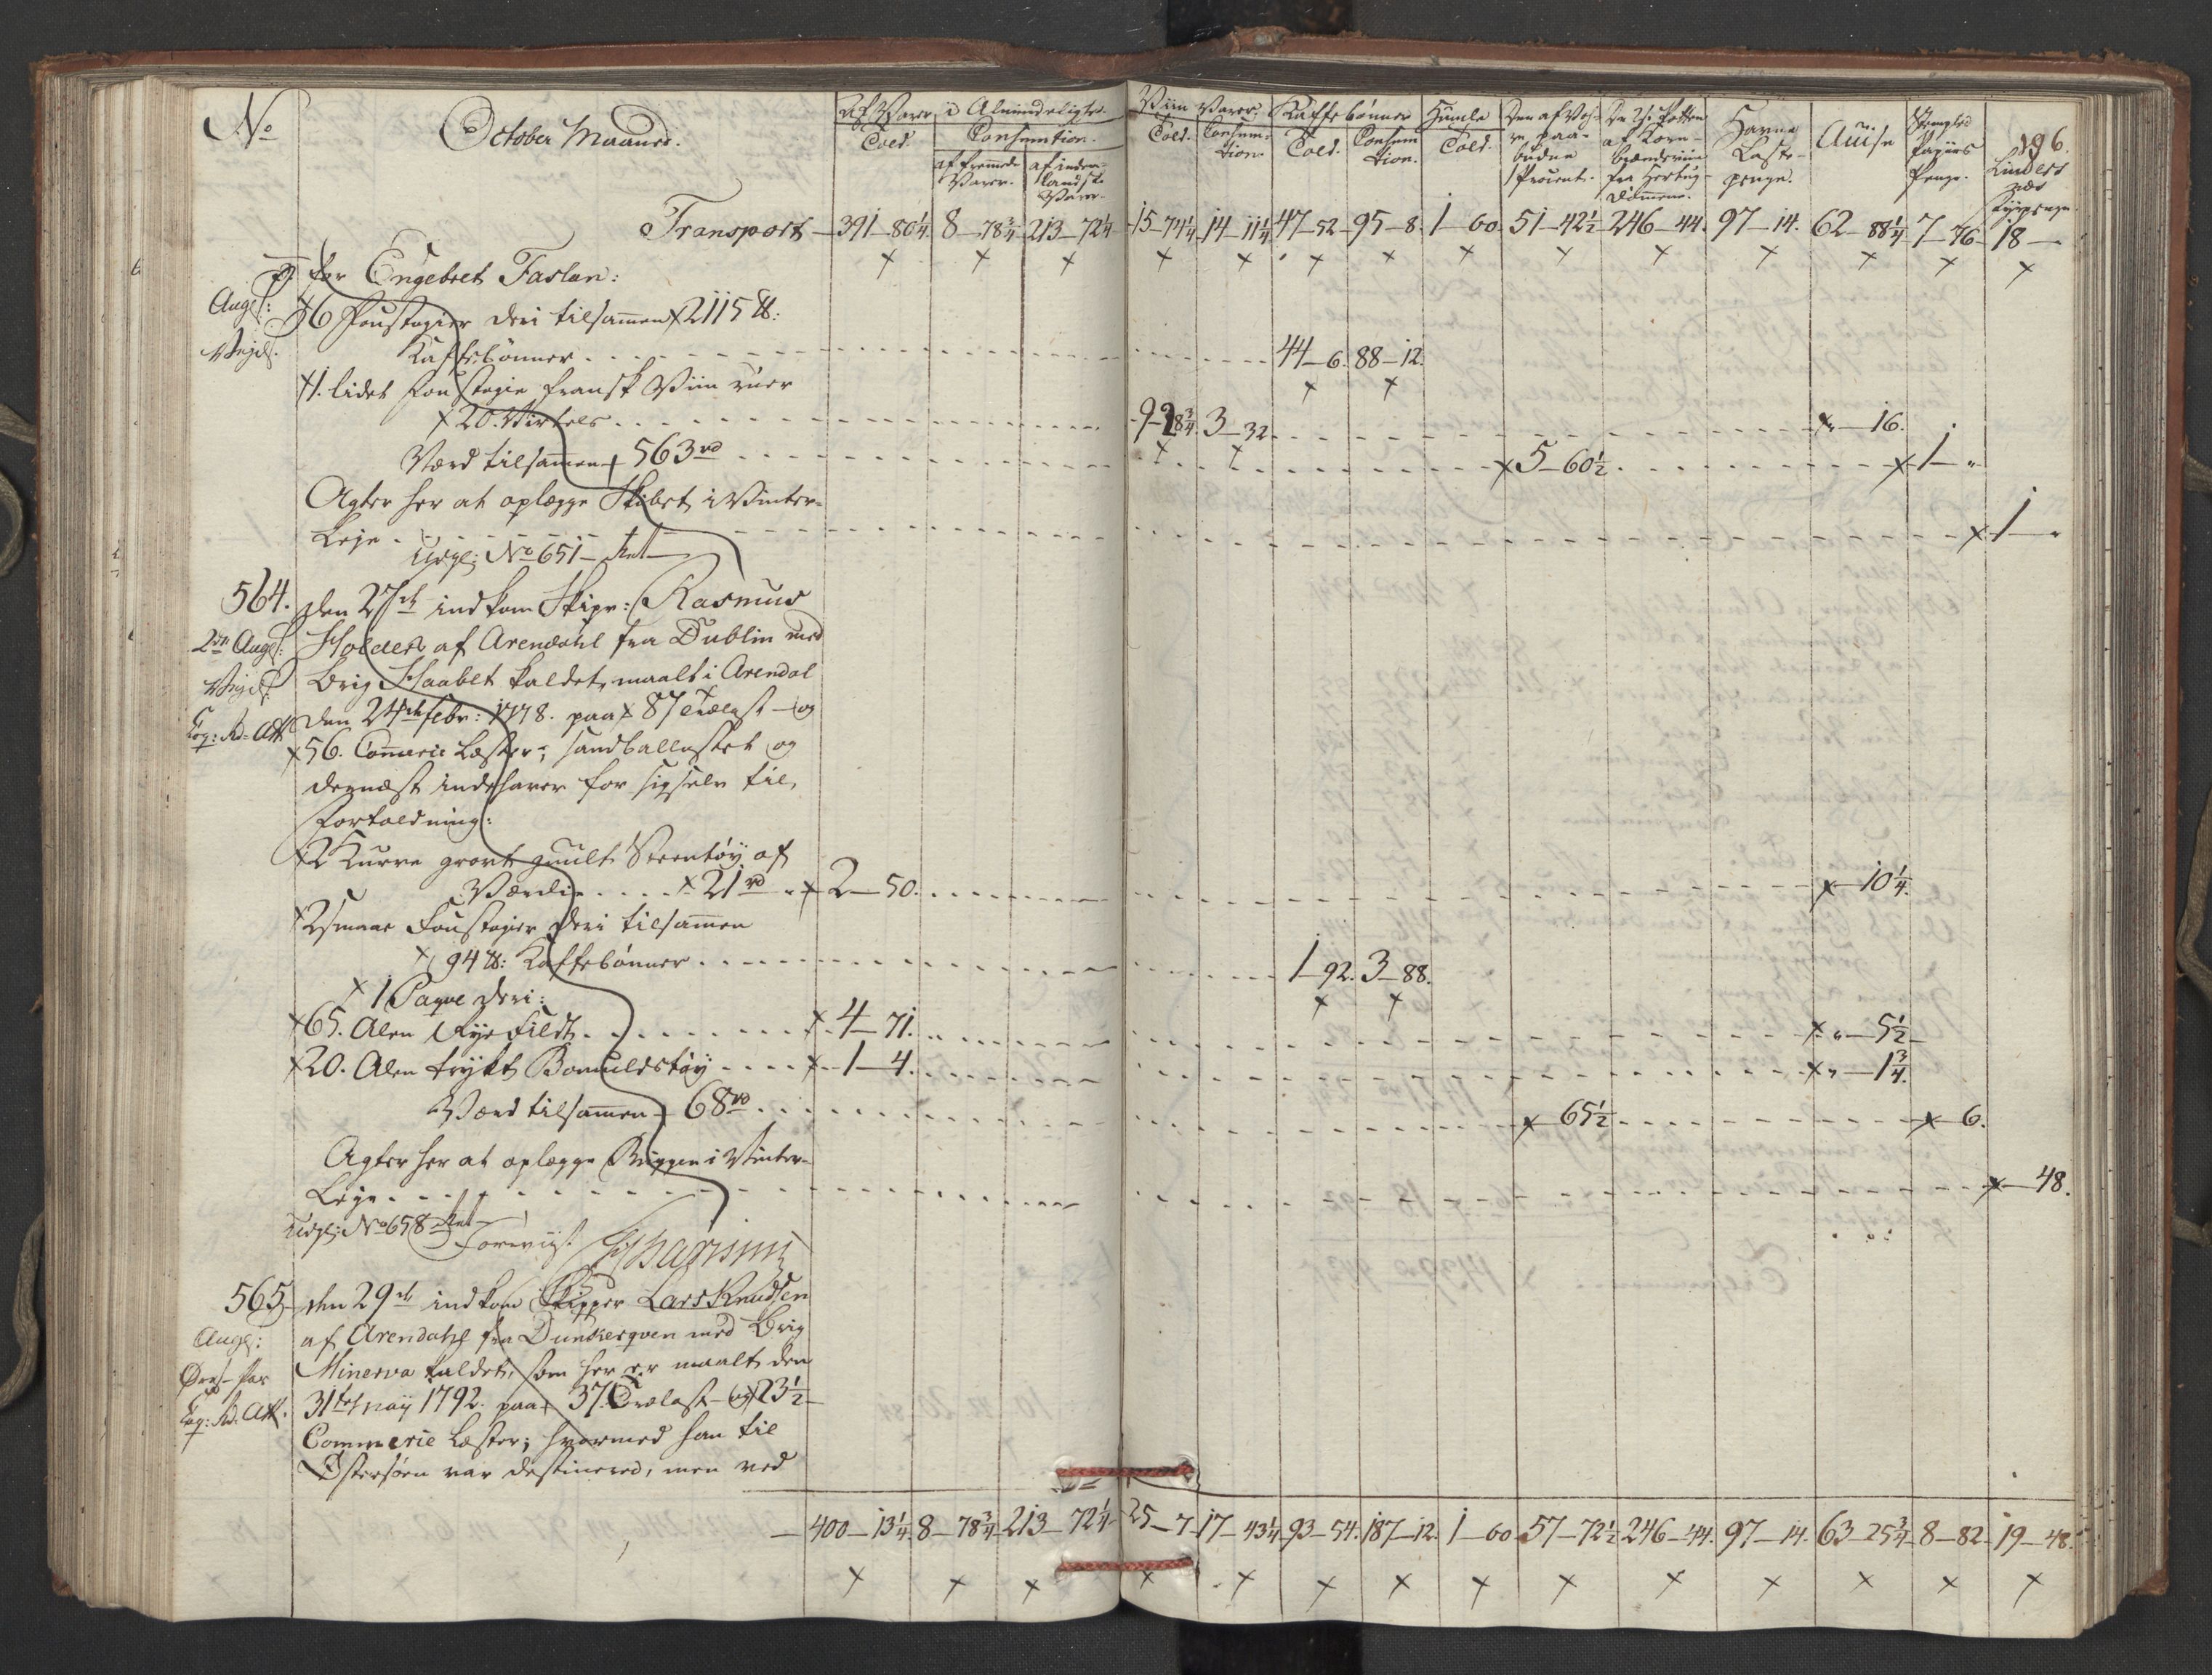 No
October Maaned.
Af Varer i Almindelighed.
Told.
Consumtion.
af fremede Varer.
af inden-landske Varer.
Viin Varer.
Told.
Consum-tion.
Kaffebønner
Told.
Consum tion.
Humle
Told.
Havne
Laste-
penge.
Stemplet
Papiirs
Penge.
196.
Transport — 391–80¼. 8–78¾ 213–72¼ 15–74¼ 14–11¼ 47–52 95–8. 1–60. 51–42½ 246–44. 97–14. 62–88¼ 7–76 18–
for Engebret Faslan:
Angl:
Vejes.
6 Foustagier deri tilsamen 2115 ℔:
Kaffebønner . . . 44–6. 88–12.
1. lidet Foustagie fransk Viin
20. Virtels . . . 9–28¾. 3–32. . . . 16.
Værd tilsamen 563 rd . . . 5–60½ . . . 1–"
Agter her at oplægge Skibet i Vinter-
Leje . . . 1–"
Udgl: No 651
564. den 27de indkom Skipr: Rasmus
2den Angl:
Holders af Arendahl fra Dublin med
Vejes
Brig Haabet kaldet, maalt i Arendal
den 24de Febr: 1778. paa 87 Trælast– og
56. Comerce Læster; sandballastet og
dernæst indehaver for sig selv til
Fortoldning:
2 Kurve grovt guult Steentøy af
Værdie . . . 21 rd 2–50. . . . 10¼.
2 smaae Foustagier deri tilsamen
94 ℔: Kaffebønner . . . 1–92. 3–88.
1 Paqve deri:
65. Alen . . . 4–71. . . . 5½
20. Alen trykt Bomuldstøy . . . 1–4. . . . 1¾.
Værd tilsamen 68 rd . . . 65½ . . . 6.
Agter her at oplægge Briggen i Vinter-
Leje . . . 48.
Udgl: No 658
Foreviist
565 den 29de indkom Skipper Lars Knudsen
Angl:
af Arendahl fra Dunkerqven med Brig
Minerva kaldet, som her er maalt den
31te May 1792. paa 37. Trælast– og 23½
Commerce Læster; hvormed han til
Østersøen var destinered, men ved
— 400–13¼ 8–78¾ 213–72¼ 25–7 17–43¼ 93–54. 187–12. 1–60 57–72½ 246–44. 97–14. 63–25¾ 8–82 19–48.